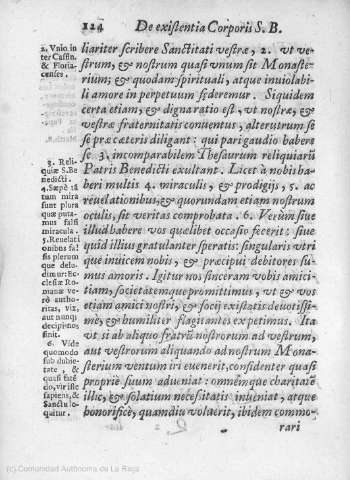 124 De existentia Corporis S. B.
2. Vnio in
ter Cassin.
& Floria-
censes.
3. Reli-
quiæ S. Be
nedicti.
4. Sæpè tā
tum mira
sunt plura
quæ puta-
mus falsi
miracula.
5. Reuelati
onibus fal
sis plerum
que delu-
dimur: Ec-
clesiæ Ro
manæ ve-
rò autho-
ritas, vix,
aut nunqȝ
decipi no,
sinit.
6. Vide
quomodo
sub dubie-
tate, &
quasi fatē
do, vir iste
sapiens, &
Sanctus lo
quitur.
liariter scribere Sanctitati vestræ, 2. vt ve-
strum, & nostrum quasi vnum sit Monaste-
rium; & quodam spirituali, atque inuiolabi-
li amore in perpetuum fœderemur. Siquidem
certa etiam, & digna ratio est, vt nostræ, &
vestræ fraternitatis conuentus, alterutrum se
se præ cæteris diligant: qui pari gaudio habere
se 3. incomparabilem Thesaurum reliquiarū
Patris Benedicti exultant. Licet à nobis ha-
beri multis 4. miraculis, & prodigijs, 5. ac
reuelationibus, & quorundam etiam nostrum
oculis, sit veritas comprobata. 6. Verùm siue
illud habere vos quælibet occasio fecerit: siue
quid illius gratulanter speratis: singularis vtri
que inuicem nobis, & præcipui debitores su-
mus amoris. Igitur nos sinceram vobis amici-
tiam, societatemque promittimus, vt & vos
etiam amici nostri, & socij existatis deuotissi-
mè, & humiliter flagitantes expetimus. Ita
vt si ab aliquo fratrū nostrorum ad vestrum,
aut vestrorum aliquando ad nostrum Mona-
sterium ventum iri euenerit, confidenter quasi
propriè suum adueniat: omnémque charitatē
illic, & solatium necessitatis inueniat, atque
honorificè, quamdiu voluerit, ibidem commo-
rari
(c) Comunidad Autónoma de La Rioja